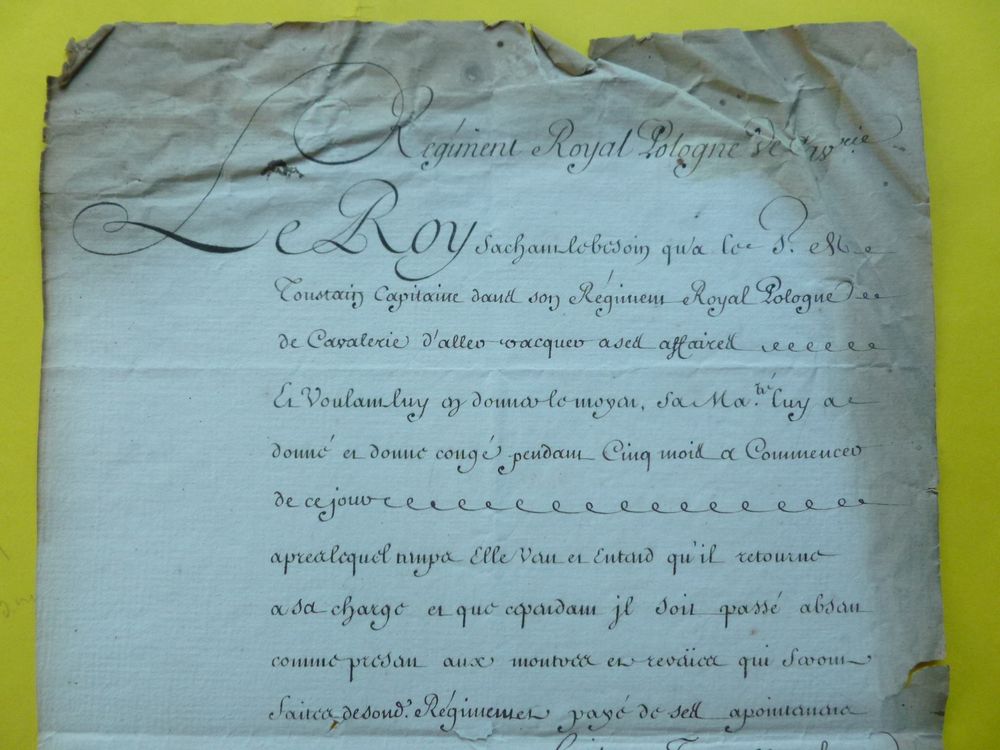 Régiment Royal Pologne de Cav.rie
Le Roy sachant le besoin qu'a le S.r M
Toustain Capitaine dans son Régiment Royal Pologne
de Cavalerie d'aller vacquer a ses affaires
Et Voulant luy en donner le moyen, Sa Ma.té luy a
donné et donne congé pendant Cinq mois a Commencer
de ce jour
apres lequel temps Elle Veut et Entend qu'il retourne
a sa charge et que cependant jl soit passé absent
comme present aux montres et reveües qui seront
faites de sond.t Régiment et payé de ses apointemens